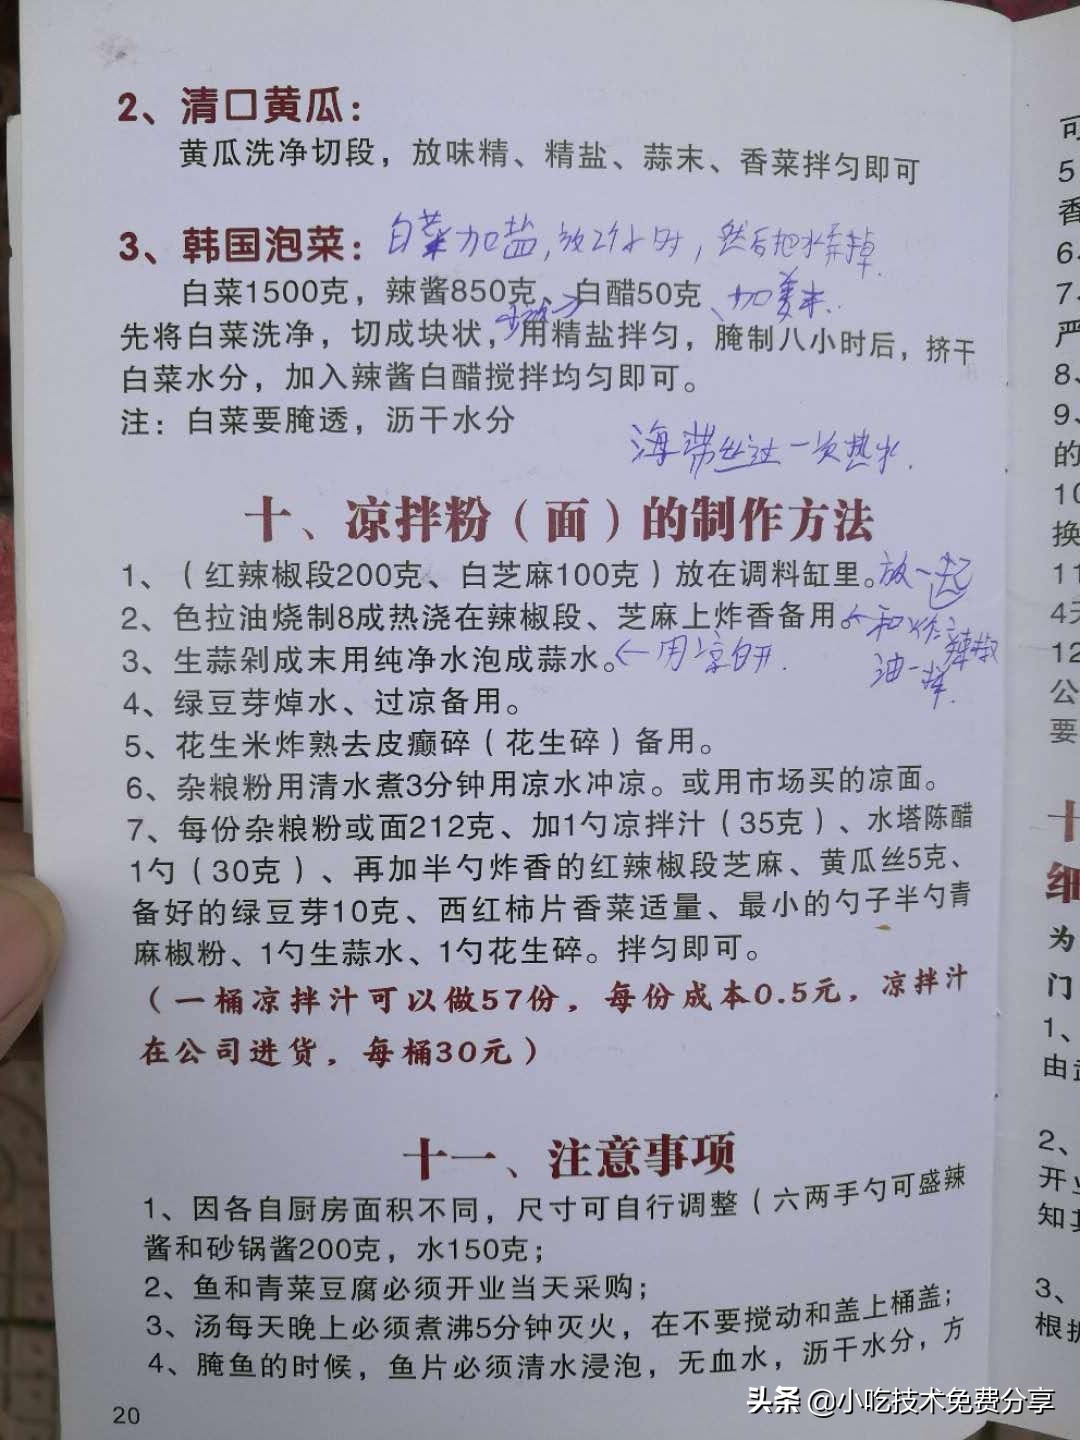 2、清口黄瓜：
黄瓜洗净切段，放味精、精盐、蒜末、香菜拌匀即可
3、韩国泡菜：白菜加盐，放2个小时，然后把水弄掉
白菜1500克，辣酱850克、白醋50克、加姜末.
先将白菜洗净，切成块状，用精盐拌匀，腌制八小时后，挤干
白菜水分，加入辣酱白醋搅拌均匀即可。
注：白菜要腌透，沥干水分
海带丝过一次热水.
十、凉拌粉（面）的制作方法
1、（红辣椒段200克、白芝麻100克）放在调料缸里。放一起
2、色拉油烧制8成热浇在辣椒段、芝麻上炸香备用。←和炸辣椒
油一样.
3、生蒜剁成末用纯净水泡成蒜水。←用凉白开.
4、绿豆芽焯水、过凉备用。
5、花生米炸熟去皮癫碎（花生碎）备用。
6、杂粮粉用清水煮3分钟用凉水冲凉。或用市场买的凉面。
7、每份杂粮粉或面212克、加1勺凉拌汁（35克）、水塔陈醋
1勺（30克）、再加半勺炸香的红辣椒段芝麻、黄瓜丝5克、
备好的绿豆芽10克、西红柿片香菜适量、最小的勺子半勺青
麻椒粉、1勺生蒜水、1勺花生碎。拌匀即可。
（一桶凉拌汁可以做57份，每份成本0.5元，凉拌汁
在公司进货，每桶30元）
十一、注意事项
1、因各自厨房面积不同，尺寸可自行调整（六两手勺可盛辣
酱和砂锅酱200克，水150克；
2、鱼和青菜豆腐必须开业当天采购；
3、汤每天晚上必须煮沸5分钟灭火，在不要搅动和盖上桶盖；
4、腌鱼的时候，鱼片必须清水浸泡，无血水，沥干水分，方
20
可
5
香
6、
7、
严
8、
9、
的
10
换
11
4天
12
公
要
十
细
为
门
1、
由
2、
开业
知
3、
根据
头条 @小吃技术免费分享